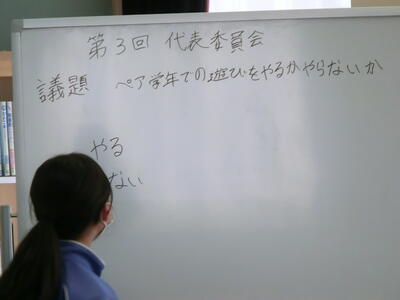 第3回 代表委員会
議題 ペア学年での遊びをやるかやらないか
やる
ない